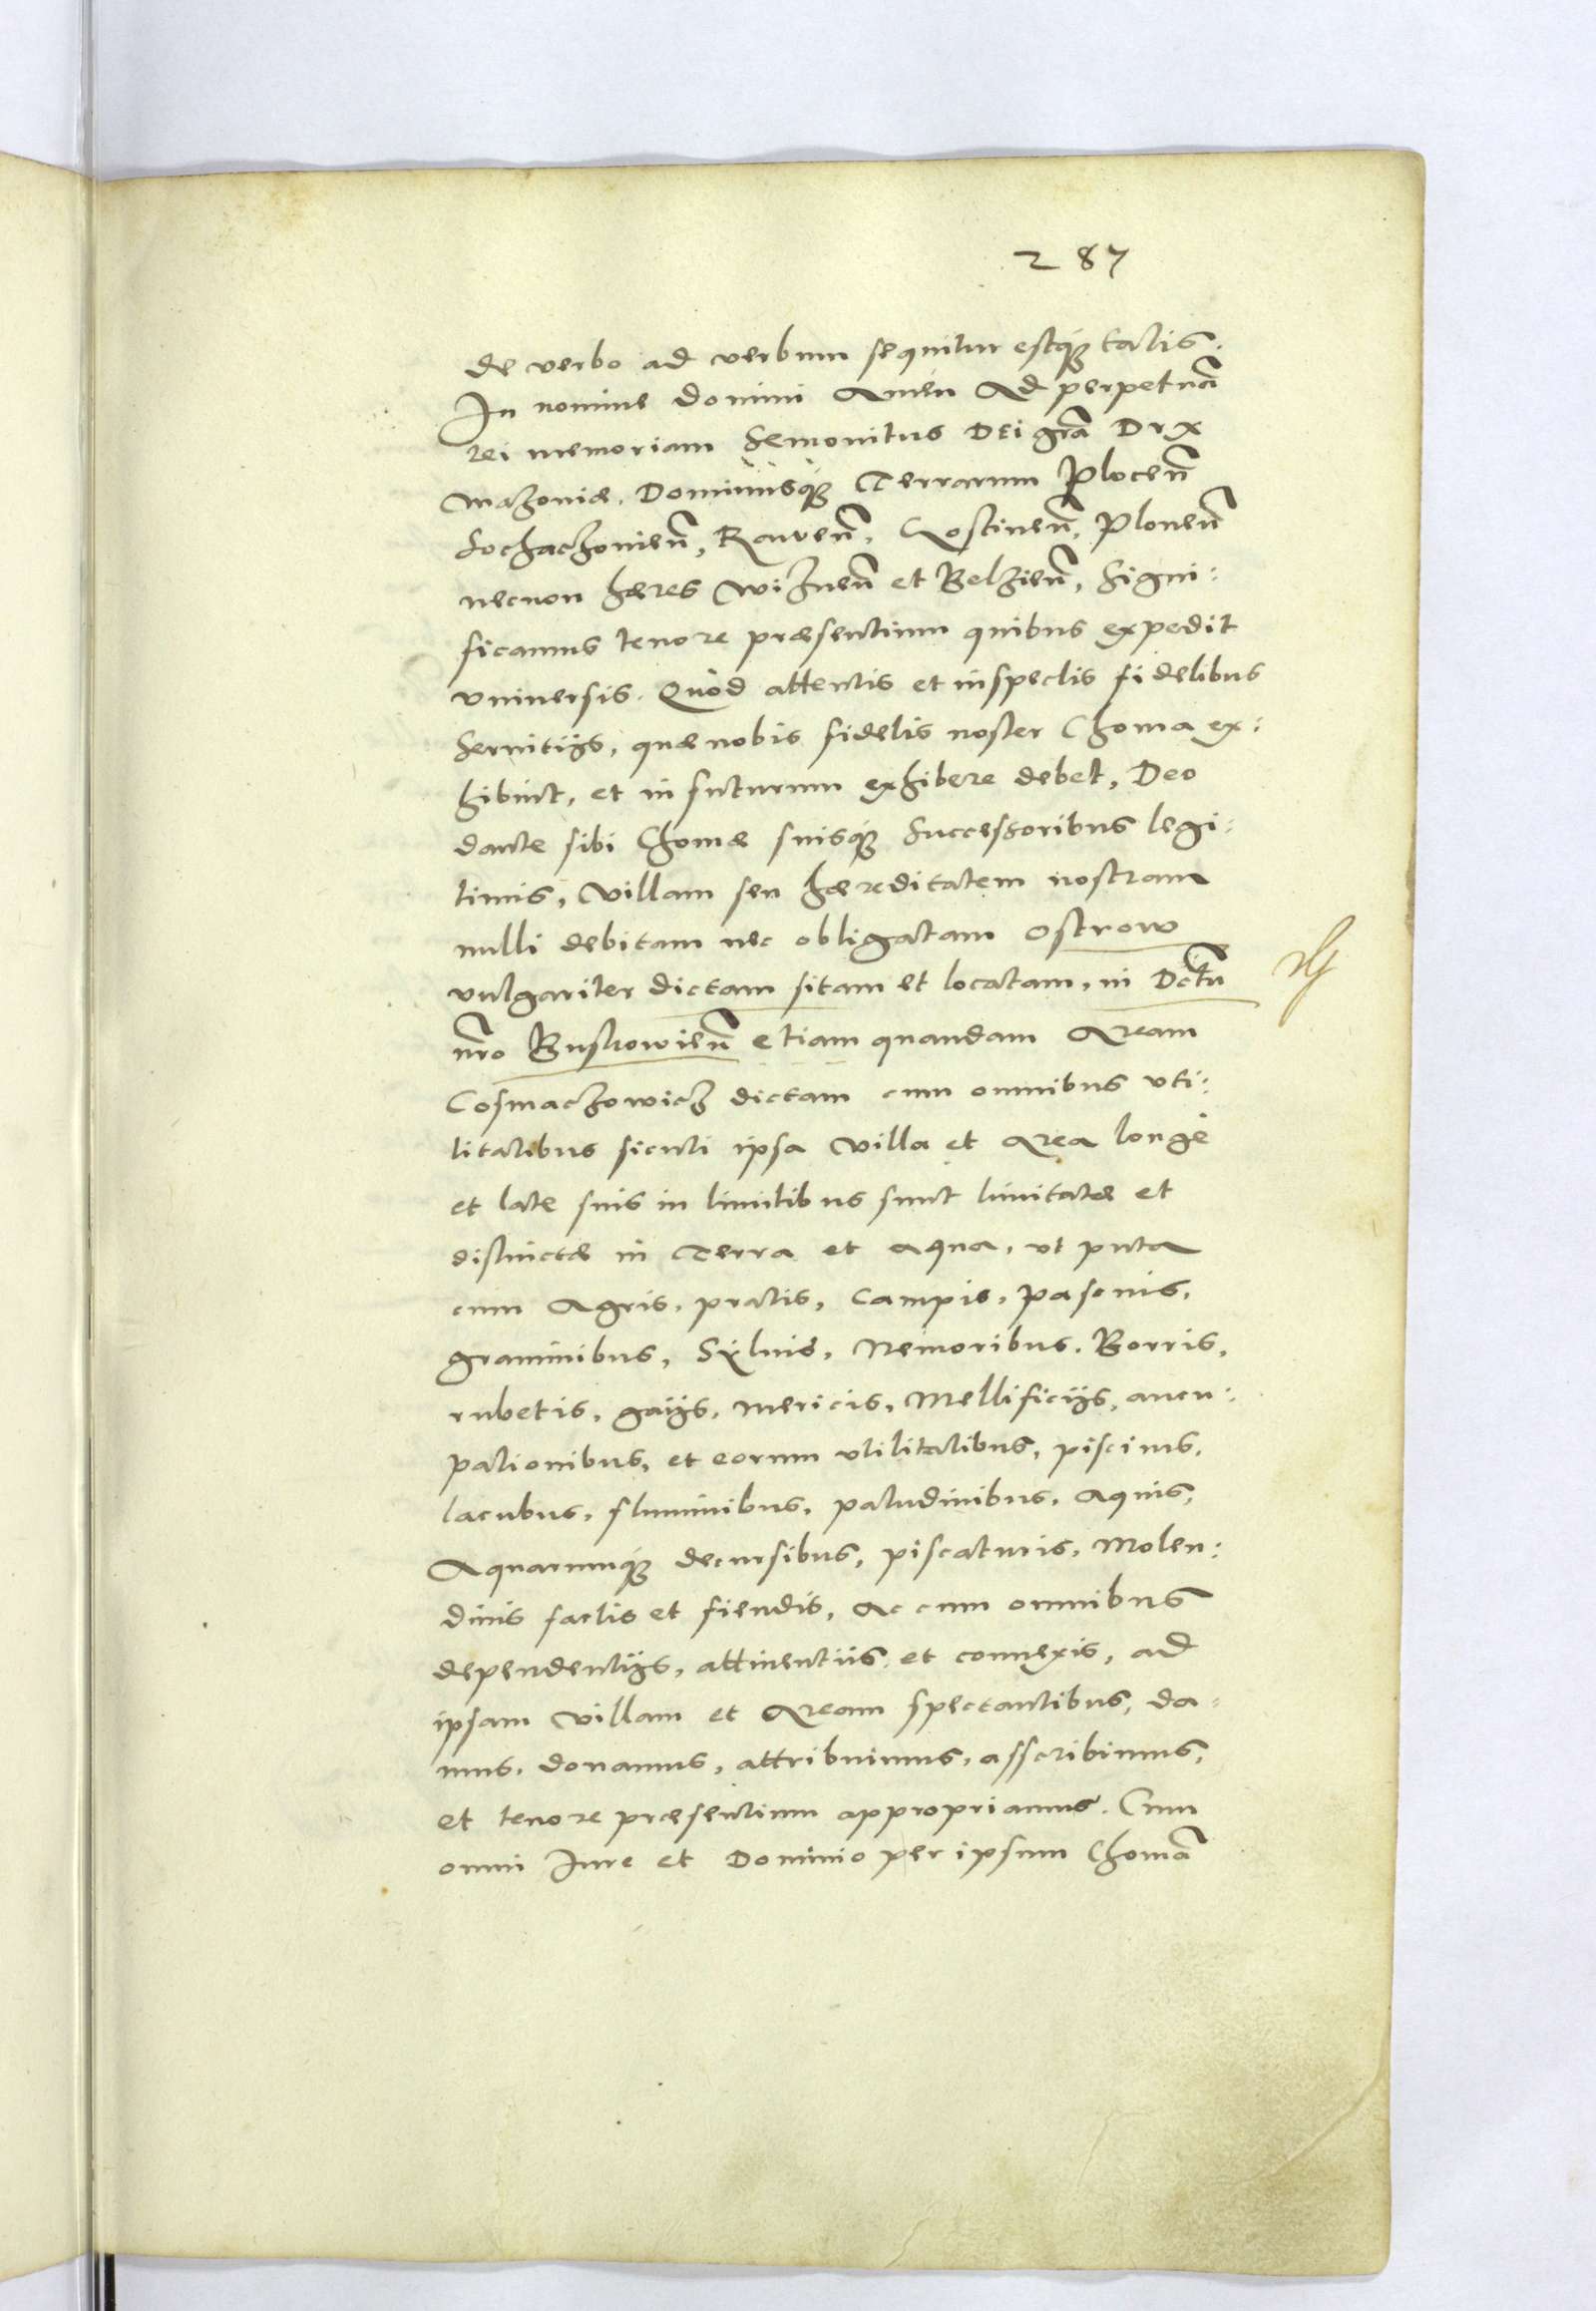 287
de verbo ad verbum sequitur estq̃ talis.
In nomine Domini Amen Ad perpetuã
rei memoriam Semovitus Dei grã Dux
Mazoviæ. Dominusq̃ Terrarum Plocen̄
Sochaczovien̄, Raven̄, Gostinen̄, Plonen̄
necnon hæres Wiznen̄ et Belzien̄, Signi:
ficamus tenore præsentium quibus expedit
universis. Quod attentis et inspectis fidelibus
servitijs, quæ nobis fidelis noster Choma ex:
hibuit, et in futurum exhibere debet, Deo
dante sibi Chomæ suisq̃ Successoribus legi:
timis, Villam seu hæreditatem nostram
nulli debitam nec obligatam Ostrow
vulgariter dictam sitam et locatam, in Dctu
nr̃o Bustrowien̄ etiam quandam Aream
Cosmaczowicz dictam cum omnibus uti:
litatibus sicuti ipsa Villa et Area longè
et late suis in limitibus sunt limitatæ et
distinctæ in Terra et aqua, ut puta
cum Agris, pratis, Campis, pascuis,
graminibus, Sÿlvis, Nemoribus. Borris,
rubetis, gaijs, mericis, Mellificijs, aucu:
pationibus, et eorum utilitatibus, piscinis,
lacubus, fluminibus, paludinibus, Aquis,
Aquarumq̃ decursibus, piscaturis, Molen:
dinis factis et fiendis, Ac cum omnibus
dependentijs, attinentiis et connexis, ad
ipsam Villam et Aream spectantibus, da:
mus, donamus, attribuimus, asscribimus,
et tenore præsentium appropriamus. Cum
omni Jure et Dominio per ipsum Chomã